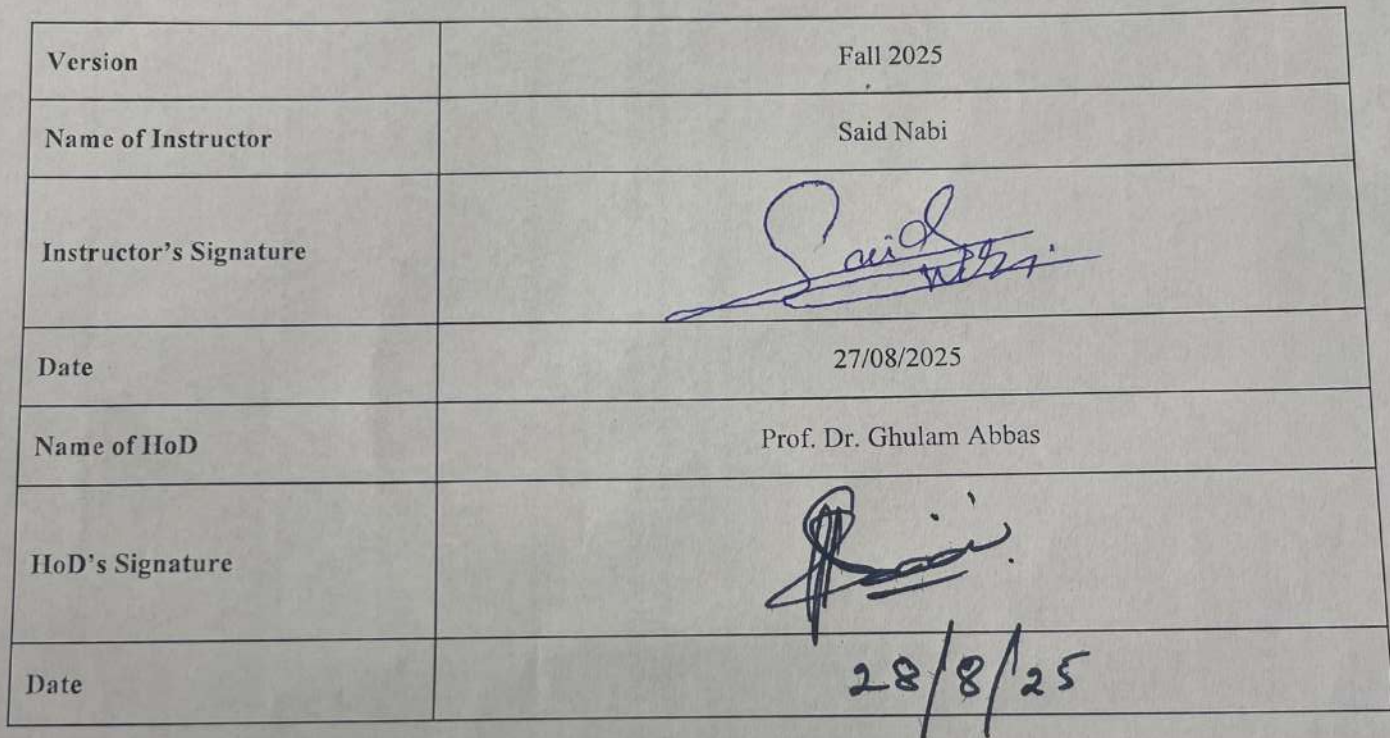 Version Fall 2025
Name of Instructor Said Nabi
Instructor's Signature Said Nabi
Date 27/08/2025
Name of HoD Prof. Dr. Ghulam Abbas
HoD's Signature
Date 28/8/25